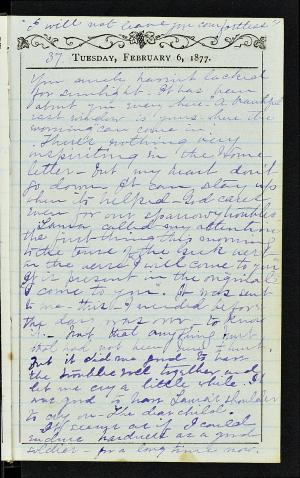 "I will not leave you comfortless"
37. TUESDAY, FEBRUARY 6, 1877.
You surely haven't lacked
for sunlight. It has been
about you every where. A beautiful
east window is yours where the
morning can come in.
There's nothing very
inspiriting in the home
letter - but my heart don't
go down. It can stay up
then to be helped - God cares
even for our sparrowy troubles
Laura called my attention
the first thing this morning
to the tense of the Greek verb
in the verse I will come to you.
It is present in the original
I come to you. It was sent
to me - this - I needed before
the day was over - to know
it. - Not that anything
But it did me good to have
the troubles roll together and
let me cry a little while. It
was good to have Laura's shoulder
to cry on - The dear child.
It seems as if I could
endure hardness as a good
soldier - for a long time now.